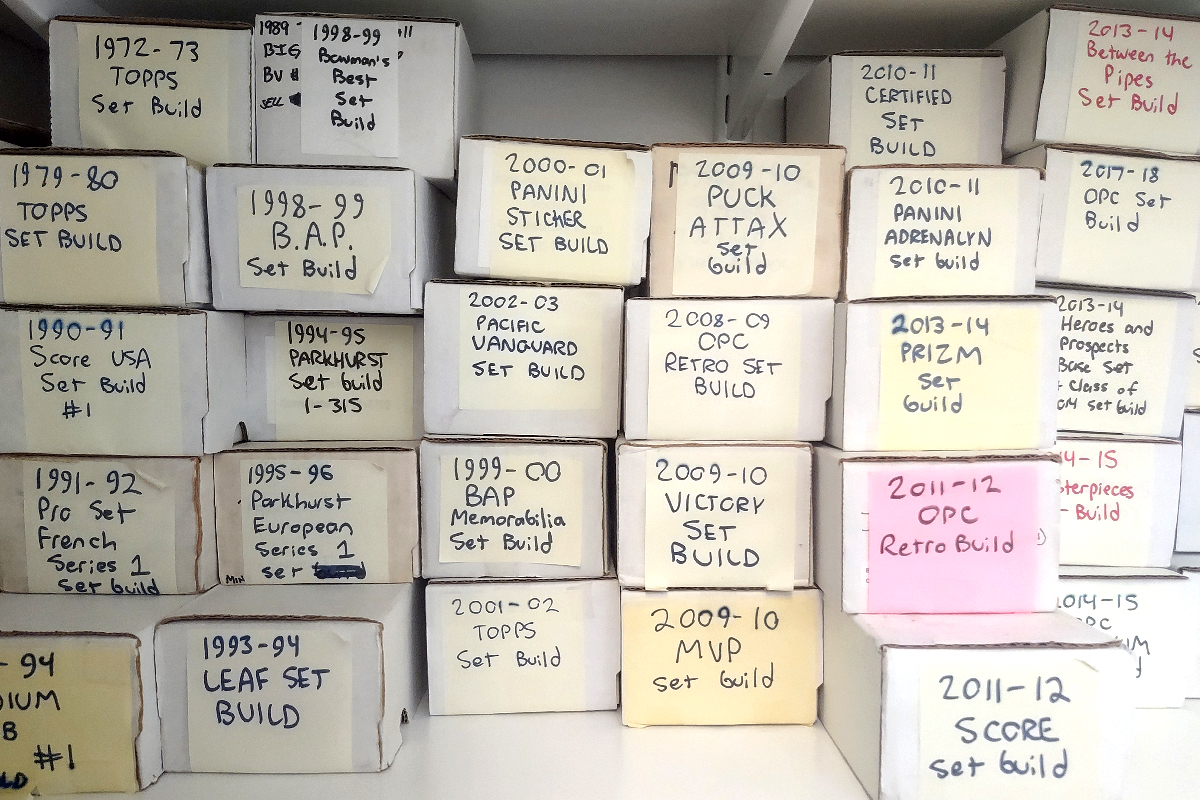 1972-73
TOPPS
Set Build
1989-
BIG
BV #
SELL
1998-99
Bowman's
Best
Set
Build
2010-11
CERTIFIED
SET
BUILD
2013-14
Between the
Pipes
Set Build
1979-80
TOPPS
SET BUILD
1998-99
B.A.P.
Set Build
2000-01
PANINI
STICKER
SET BUILD
2009-10
PUCK
ATTAX
set
build
2010-11
PANINI
ADRENALYN
set build
2017-18
OPC Set
Build
1990-91
Score USA
Set Build
#1
1994-95
PARKHURST
set build
1-315
2002-03
PACIFIC
VANGUARD
SET BUILD
2008-09
OPC
RETRO SET
BUILD
2013-14
PRIZM
set
build
2013-14
Heroes and
Prospects
Base Set
Class of
set build
1991-92
Pro Set
French
Series 1
set build
1995-96
Parkhurst
European
Series 1
set
MIN
1999-00
BAP
Memorabilia
Set Build
2009-10
VICTORY
SET
BUILD
2011-12
OPC
Retro Build
4-15
terpieces
- Build
-94
#1
1993-94
LEAF SET
BUILD
2001-02
TOPPS
Set Build
2009-10
MVP
set build
2011-12
SCORE
set build
014-15